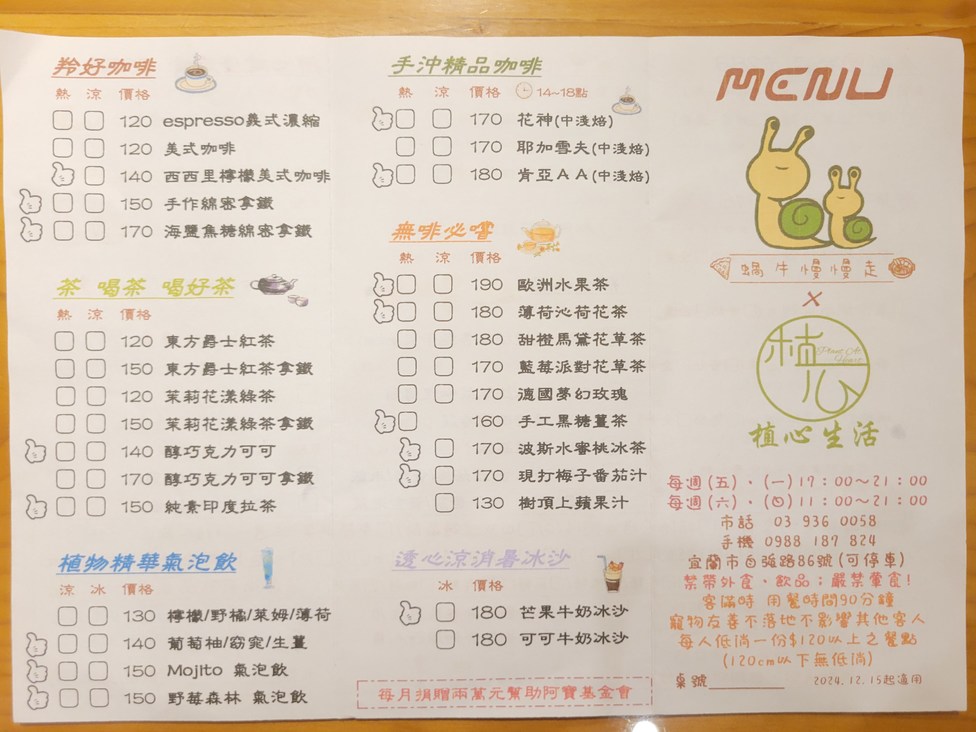 羚好咖啡
熱 涼 價格
120 espresso義式濃縮
120 美式咖啡
140 西西里檸檬美式咖啡
150 手作綿密拿鐵
170 海鹽焦糖綿密拿鐵
茶 喝茶 喝好茶
熱 涼 價格
120 東方爵士紅茶
150 東方爵士紅茶拿鐵
120 茉莉花漾綠茶
150 茉莉花漾綠茶拿鐵
140 醇巧克力可可
170 醇巧克力可可拿鐵
150 純素印度拉茶
植物精華氣泡飲
涼 冰 價格
130 檸檬/野橘/萊姆/薄荷
140 葡萄柚/窈窕/生薑
150 Mojito 氣泡飲
150 野莓森林 氣泡飲
手沖精品咖啡
熱 涼 價格 14~18點
170 花神(中淺焙)
170 耶加雪夫(中淺焙)
180 肯亞AA(中淺焙)
無啡必嚐
熱 涼 價格
190 歐洲水果茶
180 薄荷沁荷花茶
180 甜橙馬黛花草茶
170 藍莓派對花草茶
170 德國夢幻玫瑰
160 手工黑糖薑茶
170 波斯水蜜桃冰茶
170 現打梅子番茄汁
130 樹頂上蘋果汁
透心涼消暑冰沙
冰 價格
180 芒果牛奶冰沙
180 可可牛奶冰沙
每月捐贈兩萬元幫助阿寶基金會
MENU
蝸牛慢慢走
X
植心
Plant At Heart
植心生活
每週(五)、(一)17:00~21:00
每週(六)、(日)11:00~21:00
市話 03 936 0058
手機 0988 187 824
宜蘭市自強路86號(可停車)
禁帶外食、飲品;嚴禁葷食!
客滿時 用餐時間90分鐘
寵物友善不落地不影響其他客人
每人低消一份$120以上之餐點
(120cm以下無低消)
桌號________ 2024.12.15起適用